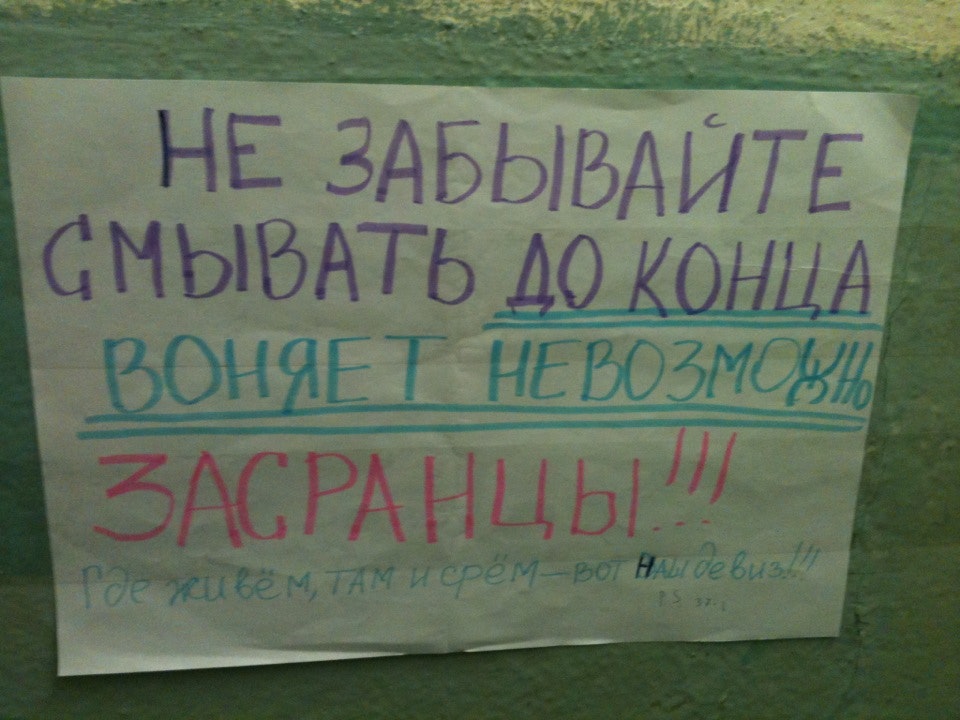 НЕ ЗАБЫВАЙТЕ
СМЫВАТЬ ДО КОНЦА
ВОНЯЕТ НЕВОЗМОЖНО
ЗАСРАНЦЫ!!!
Где живём, там и срём — вот наш девиз!!!
P.S